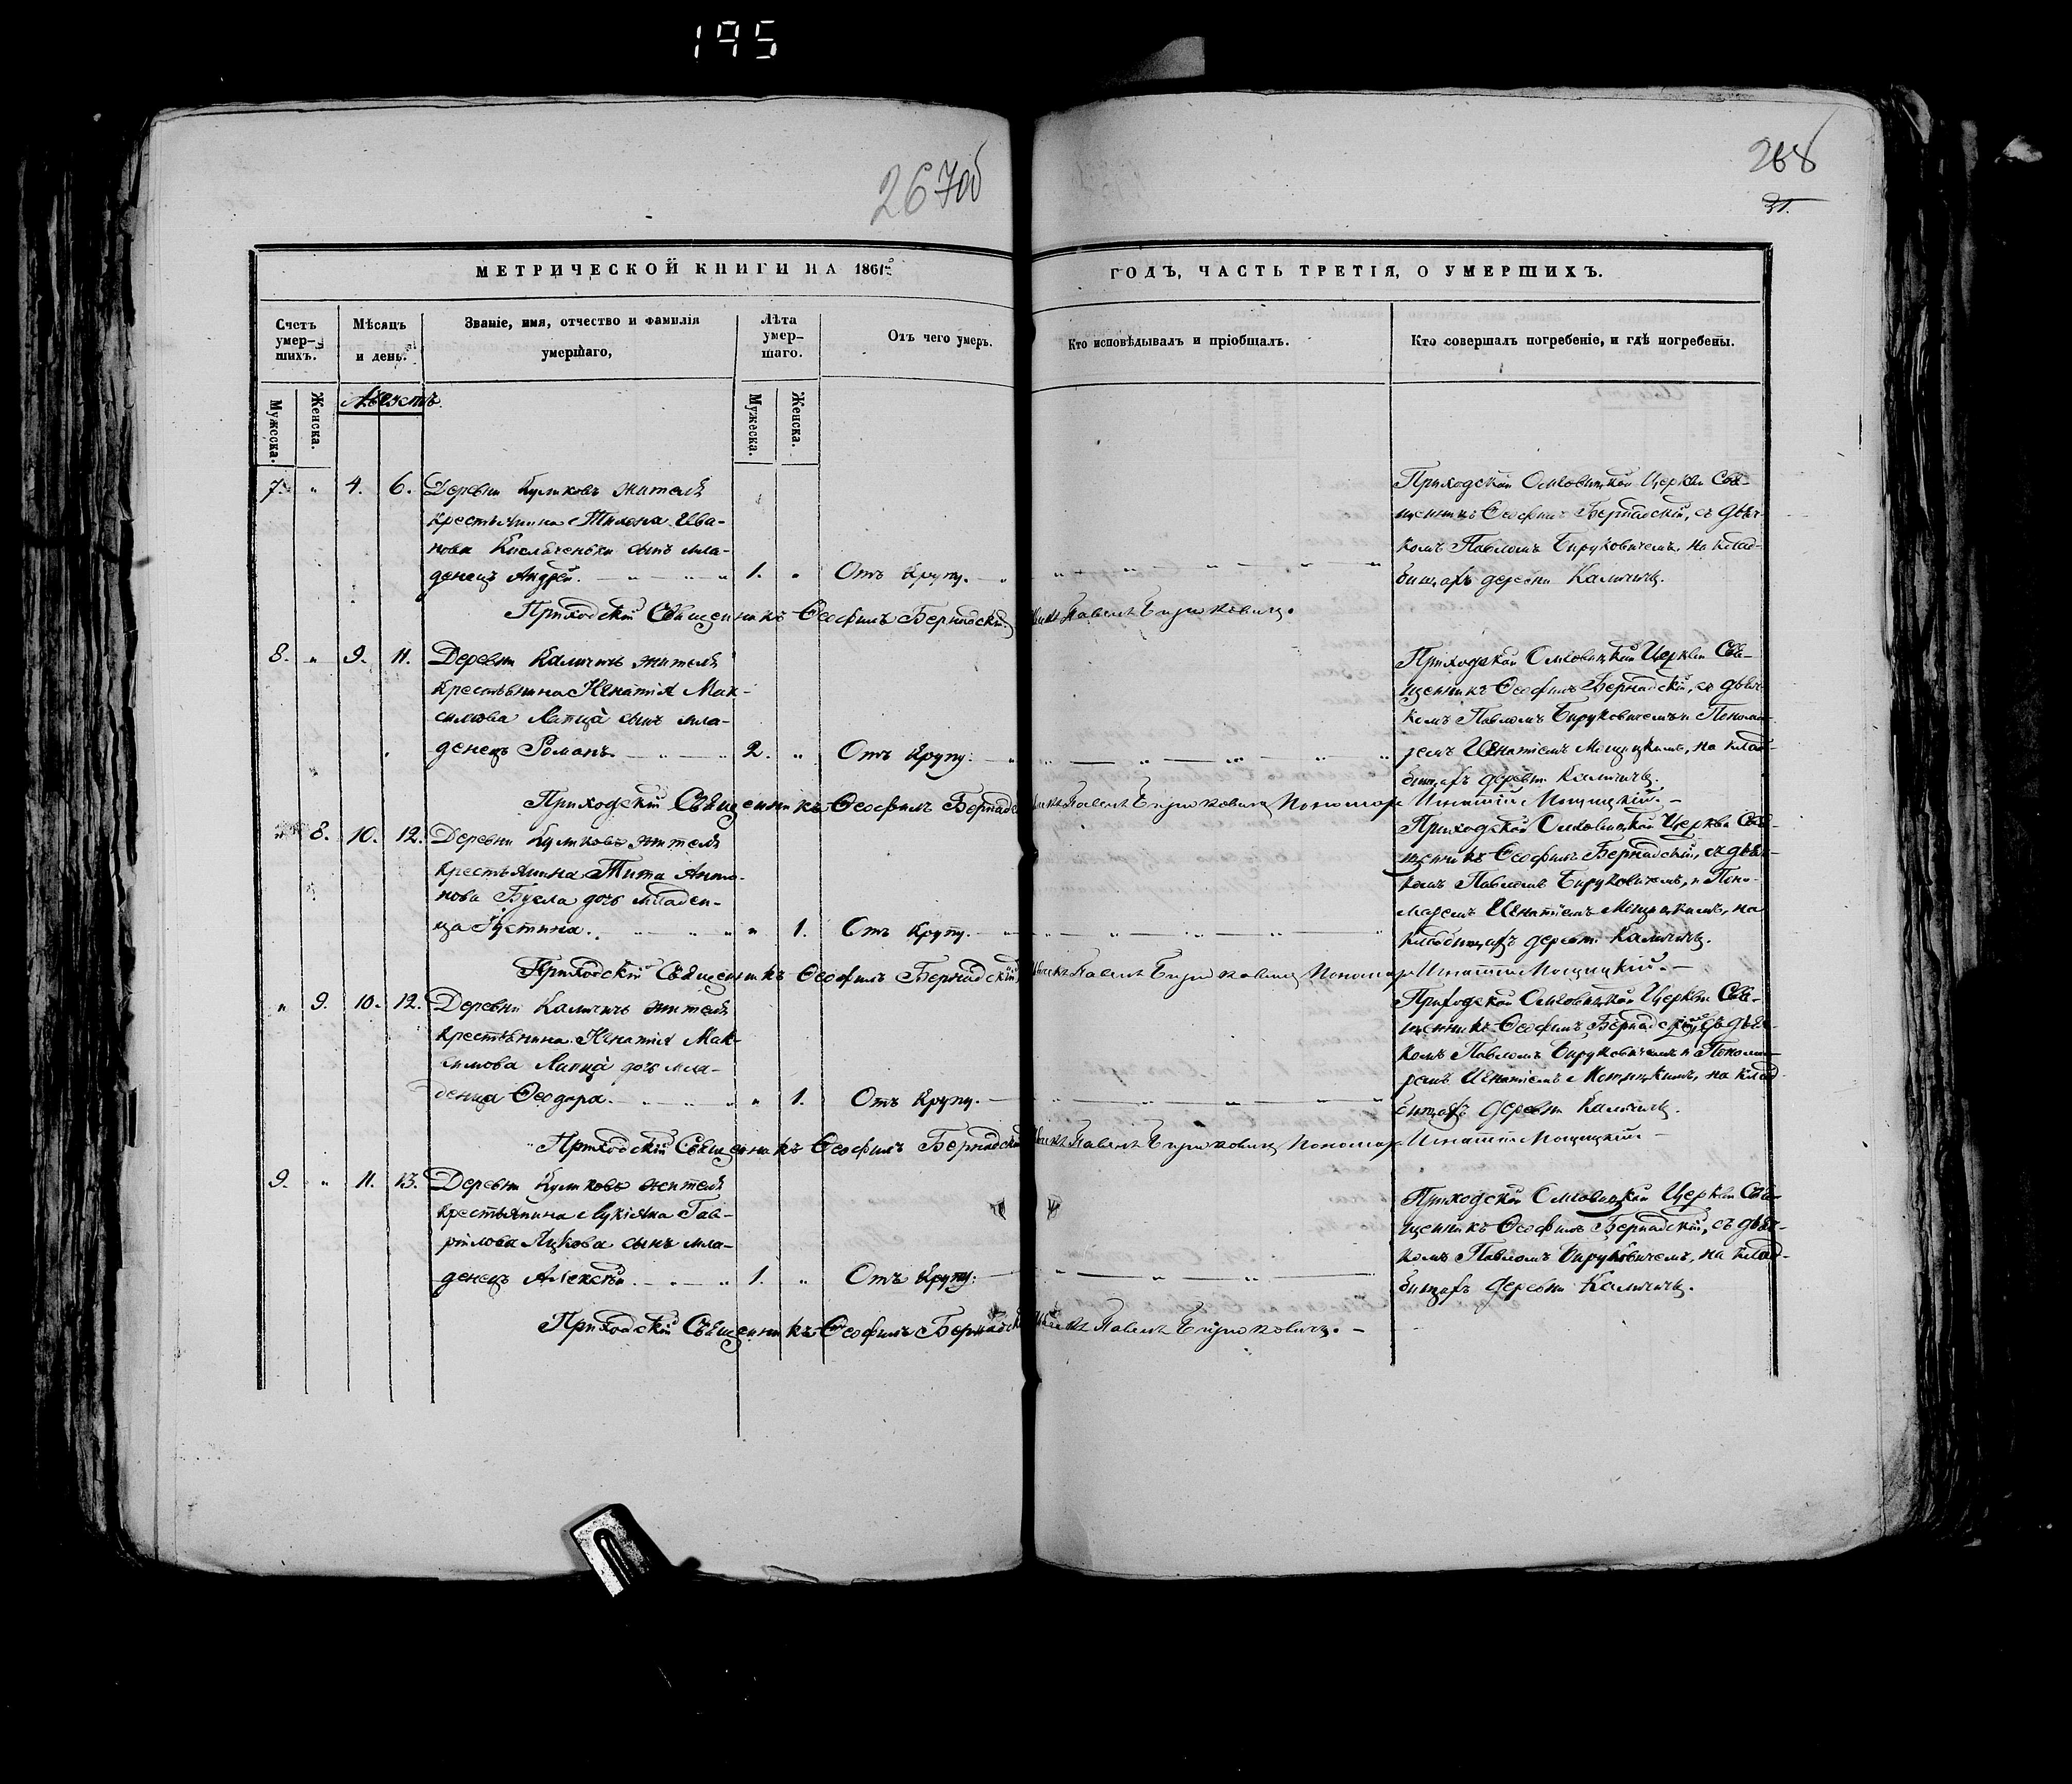 195
267об
268
31.
МЕТРИЧЕСКОЙ КНИГИ НА 1861й
ГОДЪ, ЧАСТЬ ТРЕТІЯ, О УМЕРШИХЪ.
Счетъ умер-шихъ.
Мѣсяцъ и день.
Званіе, имя, отчество и фамилія умершаго,
Лѣта умер-шаго.
Отъ чего умеръ.
Кто исповѣдывалъ и пріобщалъ.
Кто совершалъ погребеніе, и гдѣ погребены.
Мужеска.
Женска.
Августъ.
Мужеска.
Женска.
7. " 4. 6. Деревни Куликовъ жителя
крестьянина Тихона Ива-
нова сынъ мла-
денецъ Андрей. 1. " Отъ Крупу.
Приходской Церкви Свя-
щенникъ Ѳеофилъ Бернадскій, съ дьяч-
комъ Павломъ Бируковичемъ, на клад-
бищахъ деревни Каличичъ.
Приходскій Священникъ Ѳеофилъ Бернадскій Павелъ Бируковичъ.
8. " 9. 11. Деревни Каличичъ жителя
крестьянина Игнатія Мак-
симова Лапца сынъ мла-
денецъ Романъ. 2. " Отъ Крупу.
Приходской Церкви Свя-
щенникъ Ѳеофилъ Бернадскій, съ дьяч-
комъ Павломъ Бируковичемъ и Понома-
ремъ Игнатіемъ Мощицкимъ, на клад-
бищахъ деревни Каличичъ.
Приходскій Священникъ Ѳеофилъ Бернадскій Павелъ Бируковичъ Пономарь Игнатій Мощицкій.
" 8. 10. 12. Деревни Куликовъ жителя
крестьянина Тита Анто-
нова Бусла дочь младен-
ца Іустина. " 1. Отъ Крупу.
Приходской Церкви Свя-
щенникъ Ѳеофилъ Бернадскій, съ дьяч-
комъ Павломъ Бируковичемъ, и Поно-
маремъ Игнатіемъ Мощицкимъ, на
кладбищахъ деревни Каличичъ.
Приходскій Священникъ Ѳеофилъ Бернадскій Павелъ Бируковичъ Пономарь Игнатій Мощицкій.
" 9. 10. 12. Деревни Каличичъ жителя
крестьянина Игнатія Мак-
симова Лапца дочь мла-
денца Ѳеодора. " 1. Отъ Крупу.
Приходской Церкви Свя-
щенникъ Ѳеофилъ Бернадскій, съ дьяч-
комъ Павломъ Бируковичемъ и Понома-
ремъ Игнатіемъ Мощицкимъ, на клад-
бищахъ деревни Каличичъ.
Приходскій Священникъ Ѳеофилъ Бернадскій Павелъ Бируковичъ Пономарь Игнатій Мощицкій
9. " 11. 13. Деревни Куликовъ жителя
крестьянина Лукіяна Гав-
рилова Яцкова сынъ мла-
денецъ Алексѣй. 1. " Отъ Крупу.
Приходской Церкви Свя-
щенникъ Ѳеофилъ Бернадскій, съ дьяч-
комъ Павломъ Бируковичемъ, на клад-
бищахъ деревни Каличичъ.
Приходскій Священникъ Ѳеофилъ Бернадскій Павелъ Бируковичъ.